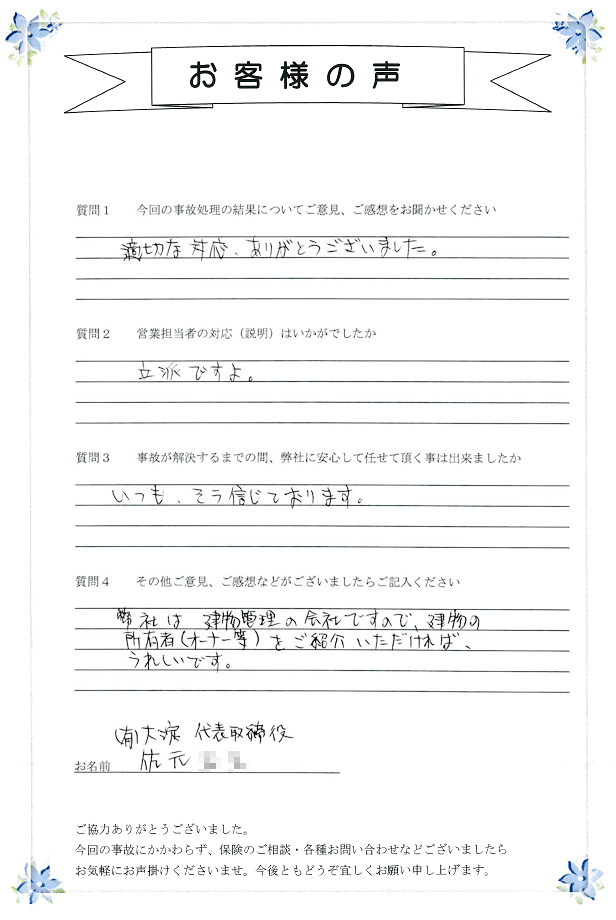 お客様の声
質問1 今回の事故処理の結果についてご意見、ご感想をお聞かせください
適切な対応、ありがとうございました。
質問2 営業担当者の対応（説明）はいかがでしたか
立派ですよ。
質問3 事故が解決するまでの間、弊社に安心して任せて頂く事は出来ましたか
いつも、そう信じております。
質問4 その他ご意見、ご感想などがございましたらご記入ください
弊社は建物管理の会社ですので、建物の
所有者（オーナー等）をご紹介いただければ、
うれしいです。
(有)大淀 代表取締役
お名前 佐元
ご協力ありがとうございました。
今回の事故にかかわらず、保険のご相談・各種お問い合わせなどございましたら
お気軽にお声掛けくださいませ。今後ともどうぞ宜しくお願い申し上げます。